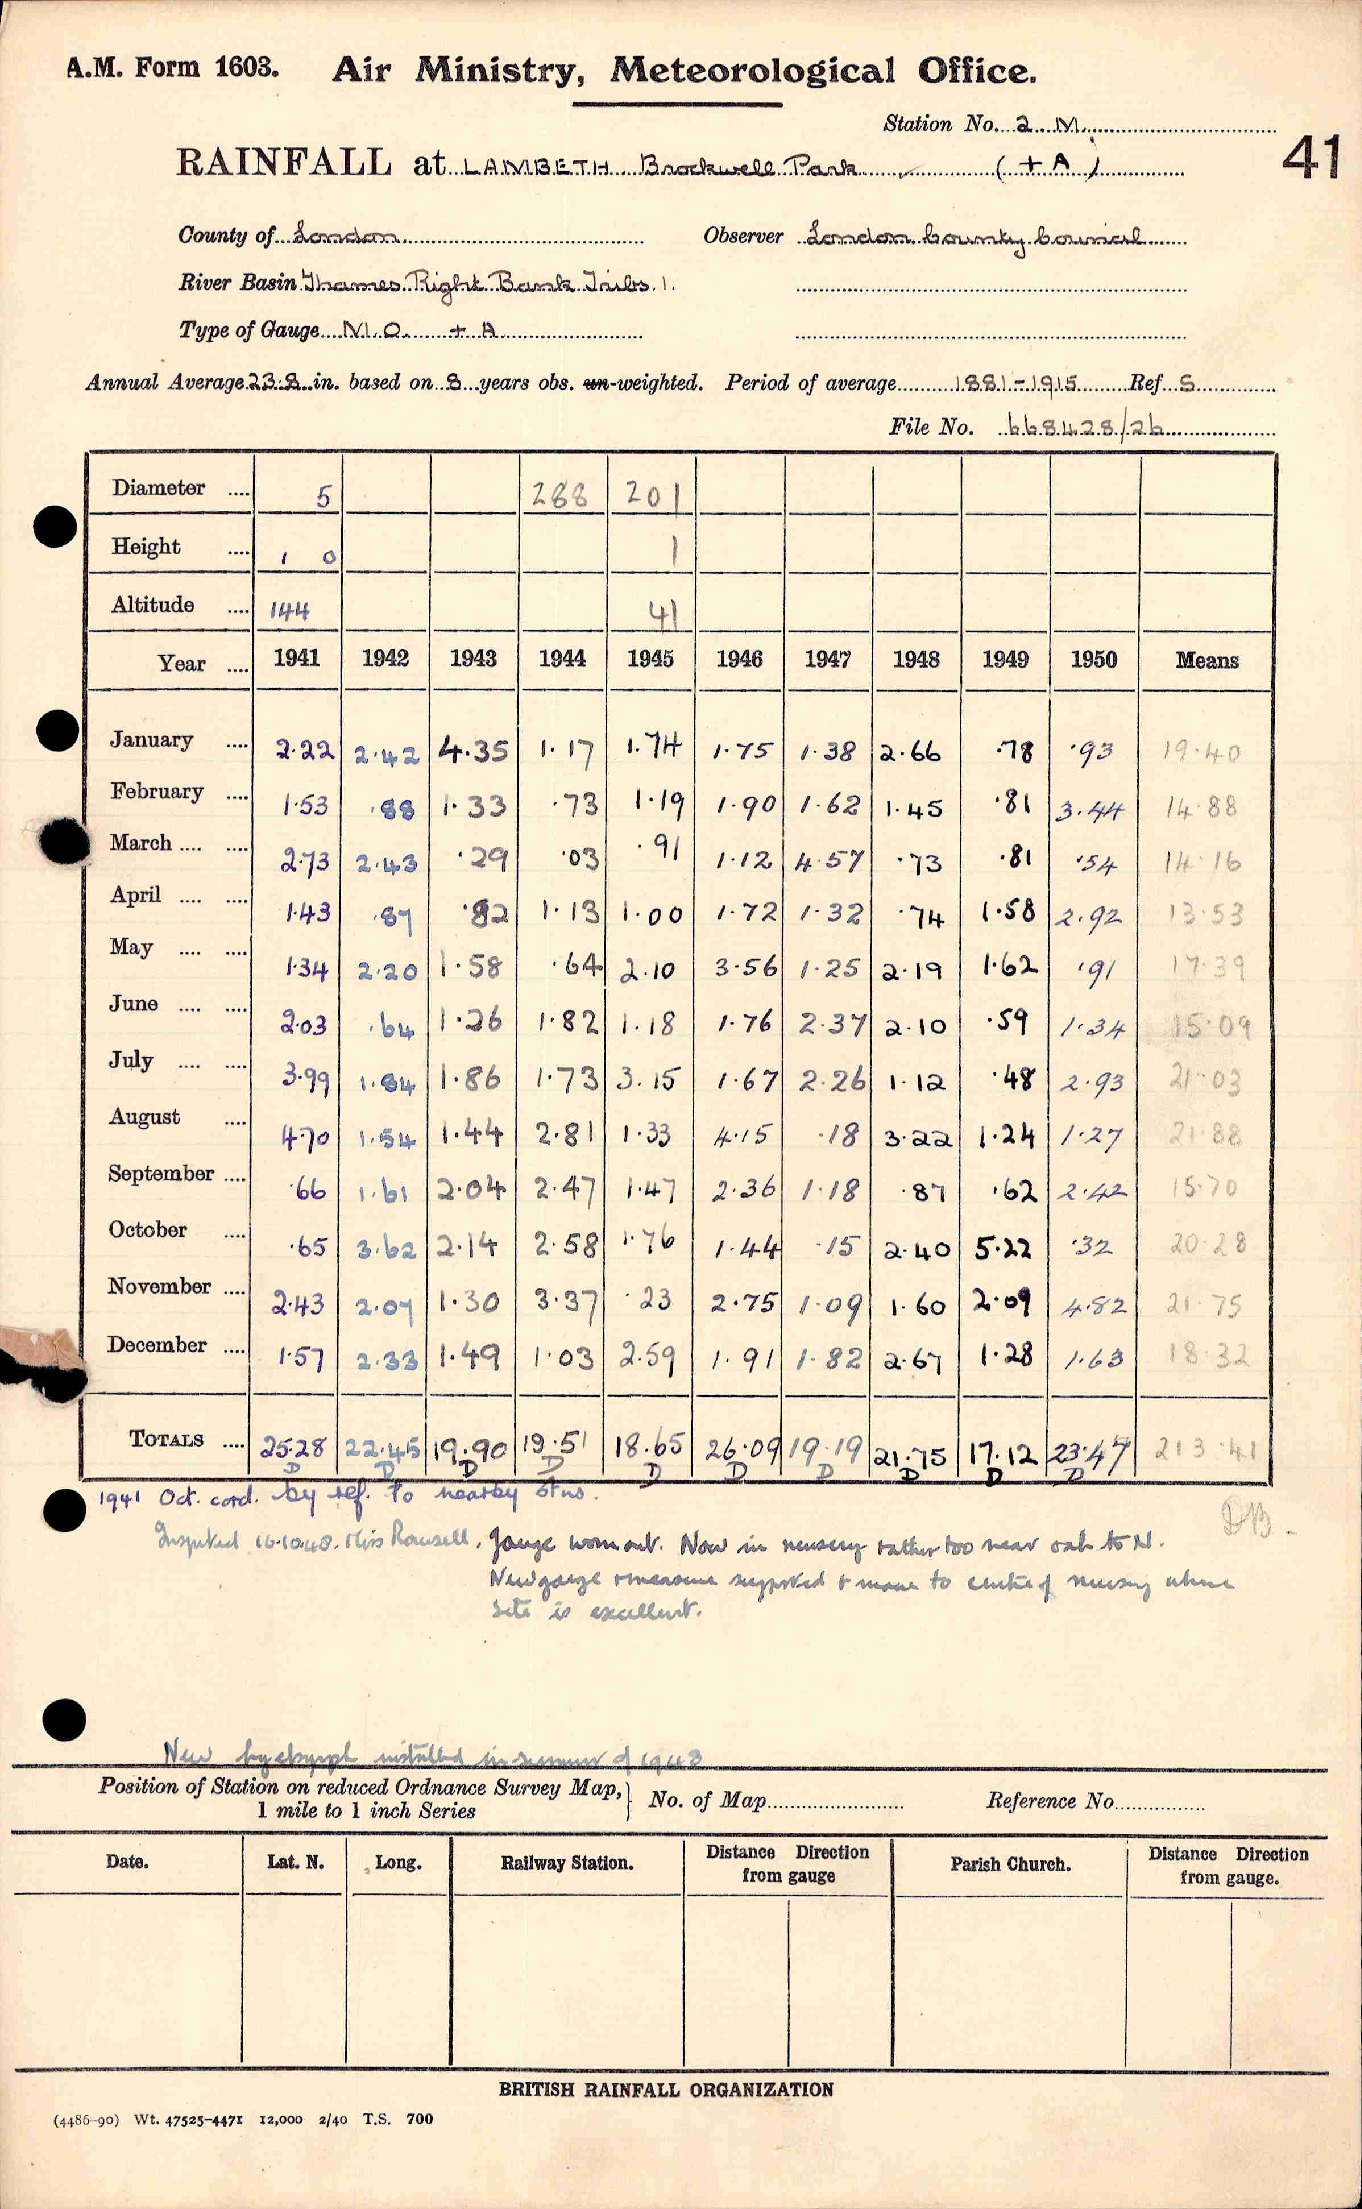 A.M. Form 1603. Air Ministry, Meteorological Office.
Station No. 2 M.
41
RAINFALL at LAMBETH Brockwell Park (+ A)
County of London Observer London County Council
River Basin Thames Right Bank Tribs. 1.
Type of Gauge M.O. + A
Annual Average 23.8 in. based on 8 years obs. un-weighted. Period of average 1881-1915 Ref. S
File No. 668428/26
Diameter .... 5 288 201
Height .... 1 0 1
Altitude .... 144 41
Year .... 1941 1942 1943 1944 1945 1946 1947 1948 1949 1950 Means
January .... 2.22 2.42 4.35 1.17 1.74 1.75 1.38 2.66 .78 .93 19.40
February .... 1.53 .88 1.33 .73 1.19 1.90 1.62 1.45 .81 3.44 14.88
March .... .... 2.73 2.43 .29 .03 .91 1.12 4.57 .73 .81 .54 14.16
April .... .... 1.43 .87 .82 1.13 1.00 1.72 1.32 .74 1.58 2.92 13.53
May .... .... 1.34 2.20 1.58 .64 2.10 3.56 1.25 2.19 1.62 .91 17.39
June .... .... 2.03 .64 1.26 1.82 1.18 1.76 2.37 2.10 .59 1.34 15.09
July .... .... 3.99 1.84 1.86 1.73 3.15 1.67 2.26 1.12 .48 2.93 21.03
August .... 4.70 1.54 1.44 2.81 1.33 4.15 .18 3.22 1.24 1.27 21.88
September .... .66 1.61 2.04 2.47 1.47 2.36 1.18 .87 .62 2.42 15.70
October .... .65 3.62 2.14 2.58 1.76 1.44 .15 2.40 5.22 .32 20.28
November .... 2.43 2.07 1.30 3.37 .23 2.75 1.09 1.60 2.09 4.82 21.75
December .... 1.57 2.33 1.49 1.03 2.59 1.91 1.82 2.67 1.28 1.63 18.32
TOTALS .... 25.28 22.45 19.90 19.51 18.65 26.09 19.19 21.75 17.12 23.47 213.41
D D D D D D D D D D
1941 Oct. cord. by ref. to nearby stns.
DB.
Inspected 16.10.48. Miss Rousell. Gauge worn out. Now in nursery rather too near oak to N.
New gauge & measure supplied & move to centre of nursery where
site is excellent.
New installed in summer of 1948
Position of Station on reduced Ordnance Survey Map, 1 mile to 1 inch Series } No. of Map Reference No
Date. Lat. N. Long. Railway Station. Distance Direction from gauge Parish Church. Distance Direction from gauge.
BRITISH RAINFALL ORGANIZATION
(4486-90) Wt. 47525-4471 12,000 2/40 T.S. 700